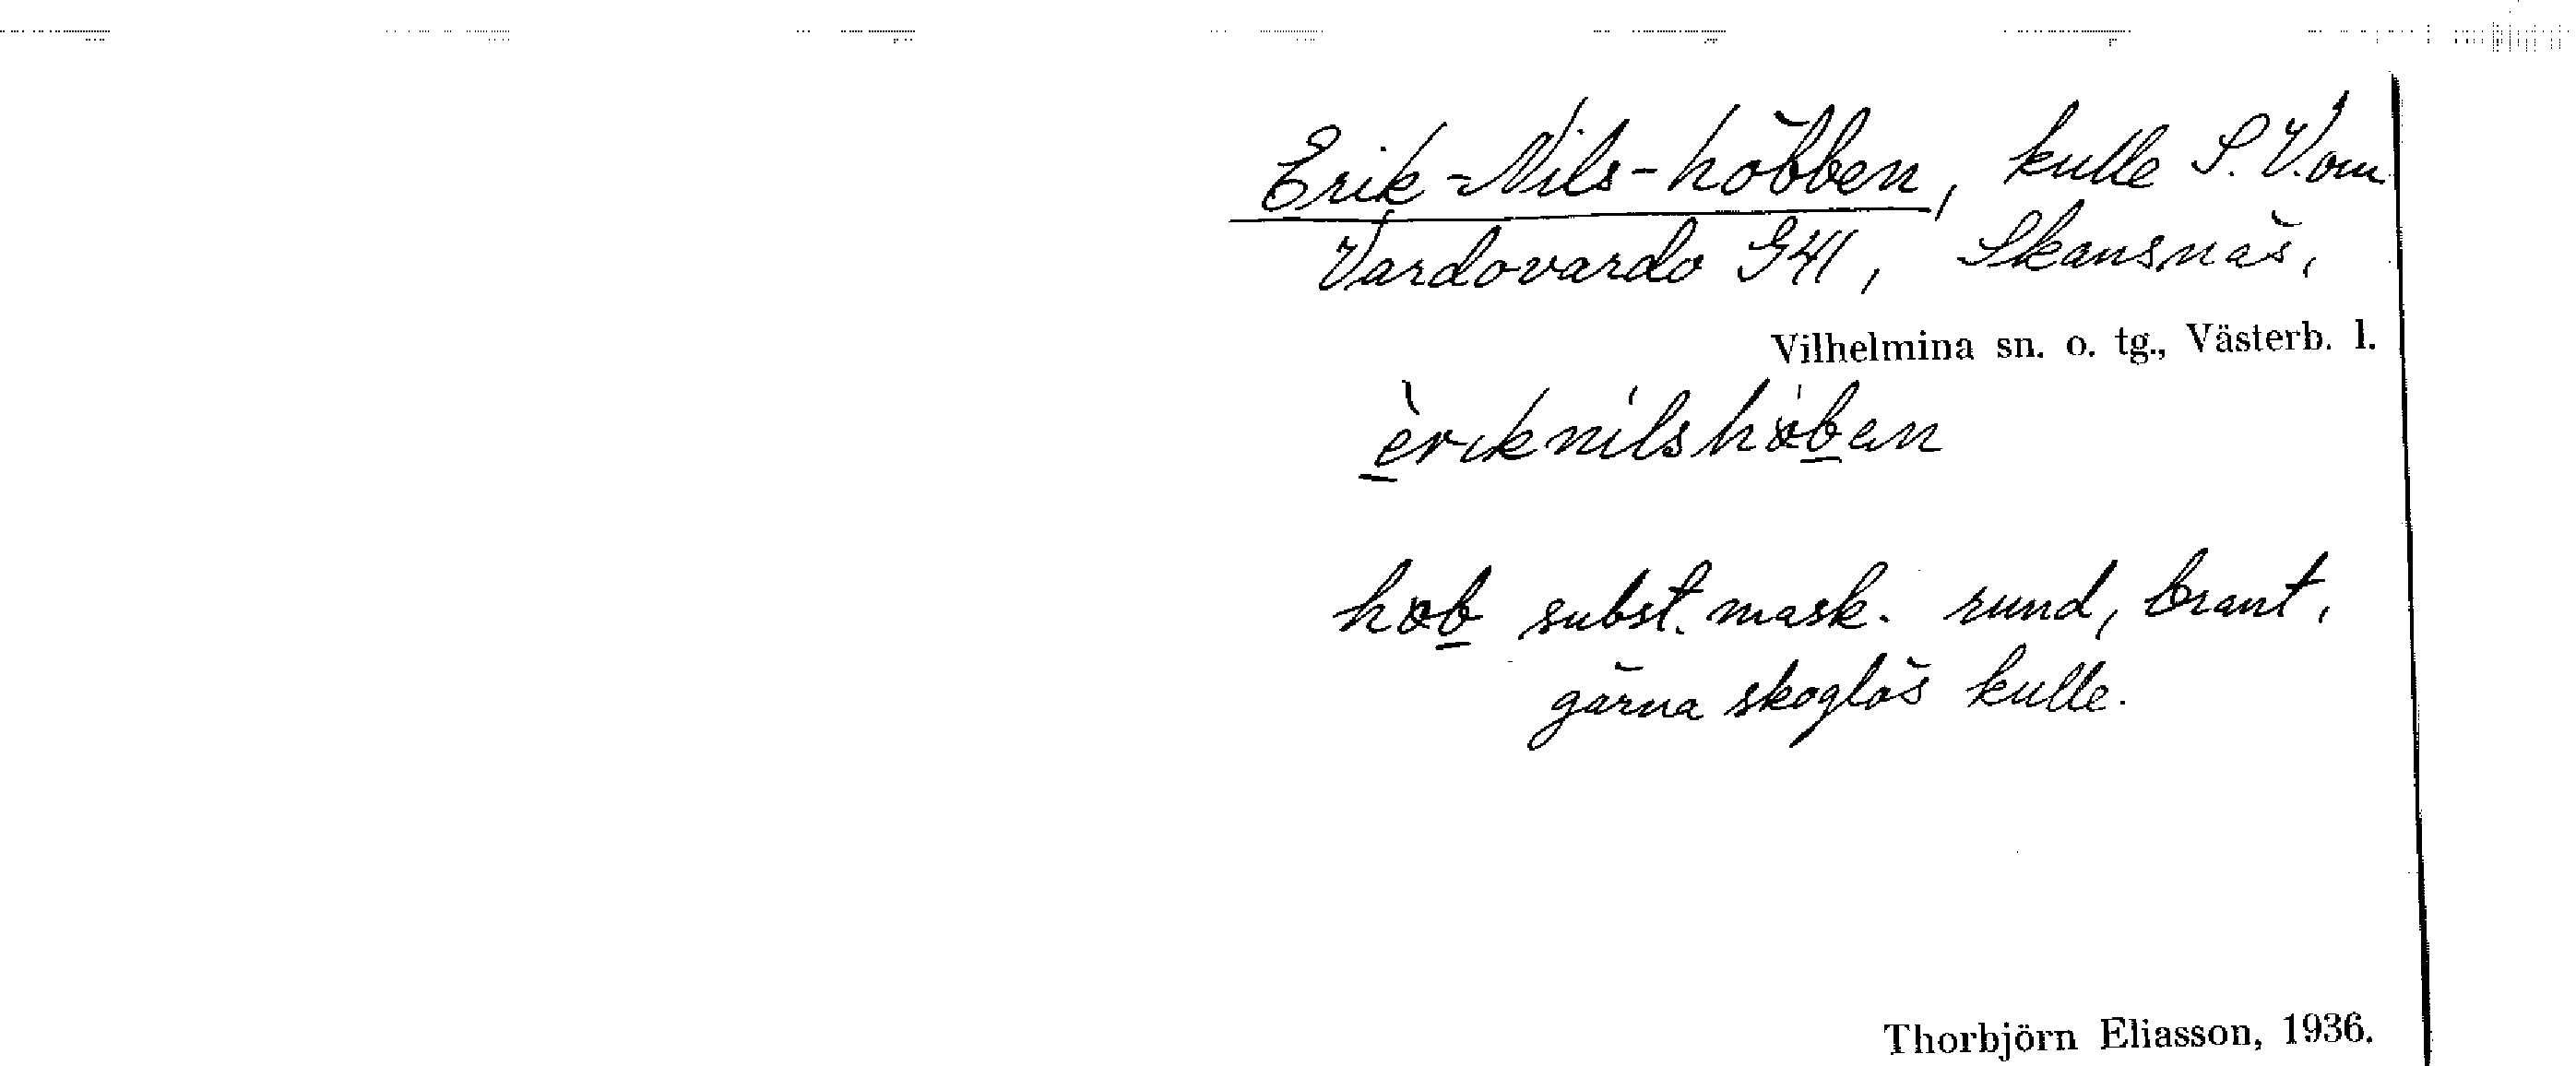 Erik-Nils-höbben, kulle S.V. om
Vardovardo G41, Skansnäs,
Vilhelmina sn. o. tg., Västerb. l.
hob subst. mask. rund, brant,
gärna skoglös kulle.
Thorbjörn Eliasson, 1936.